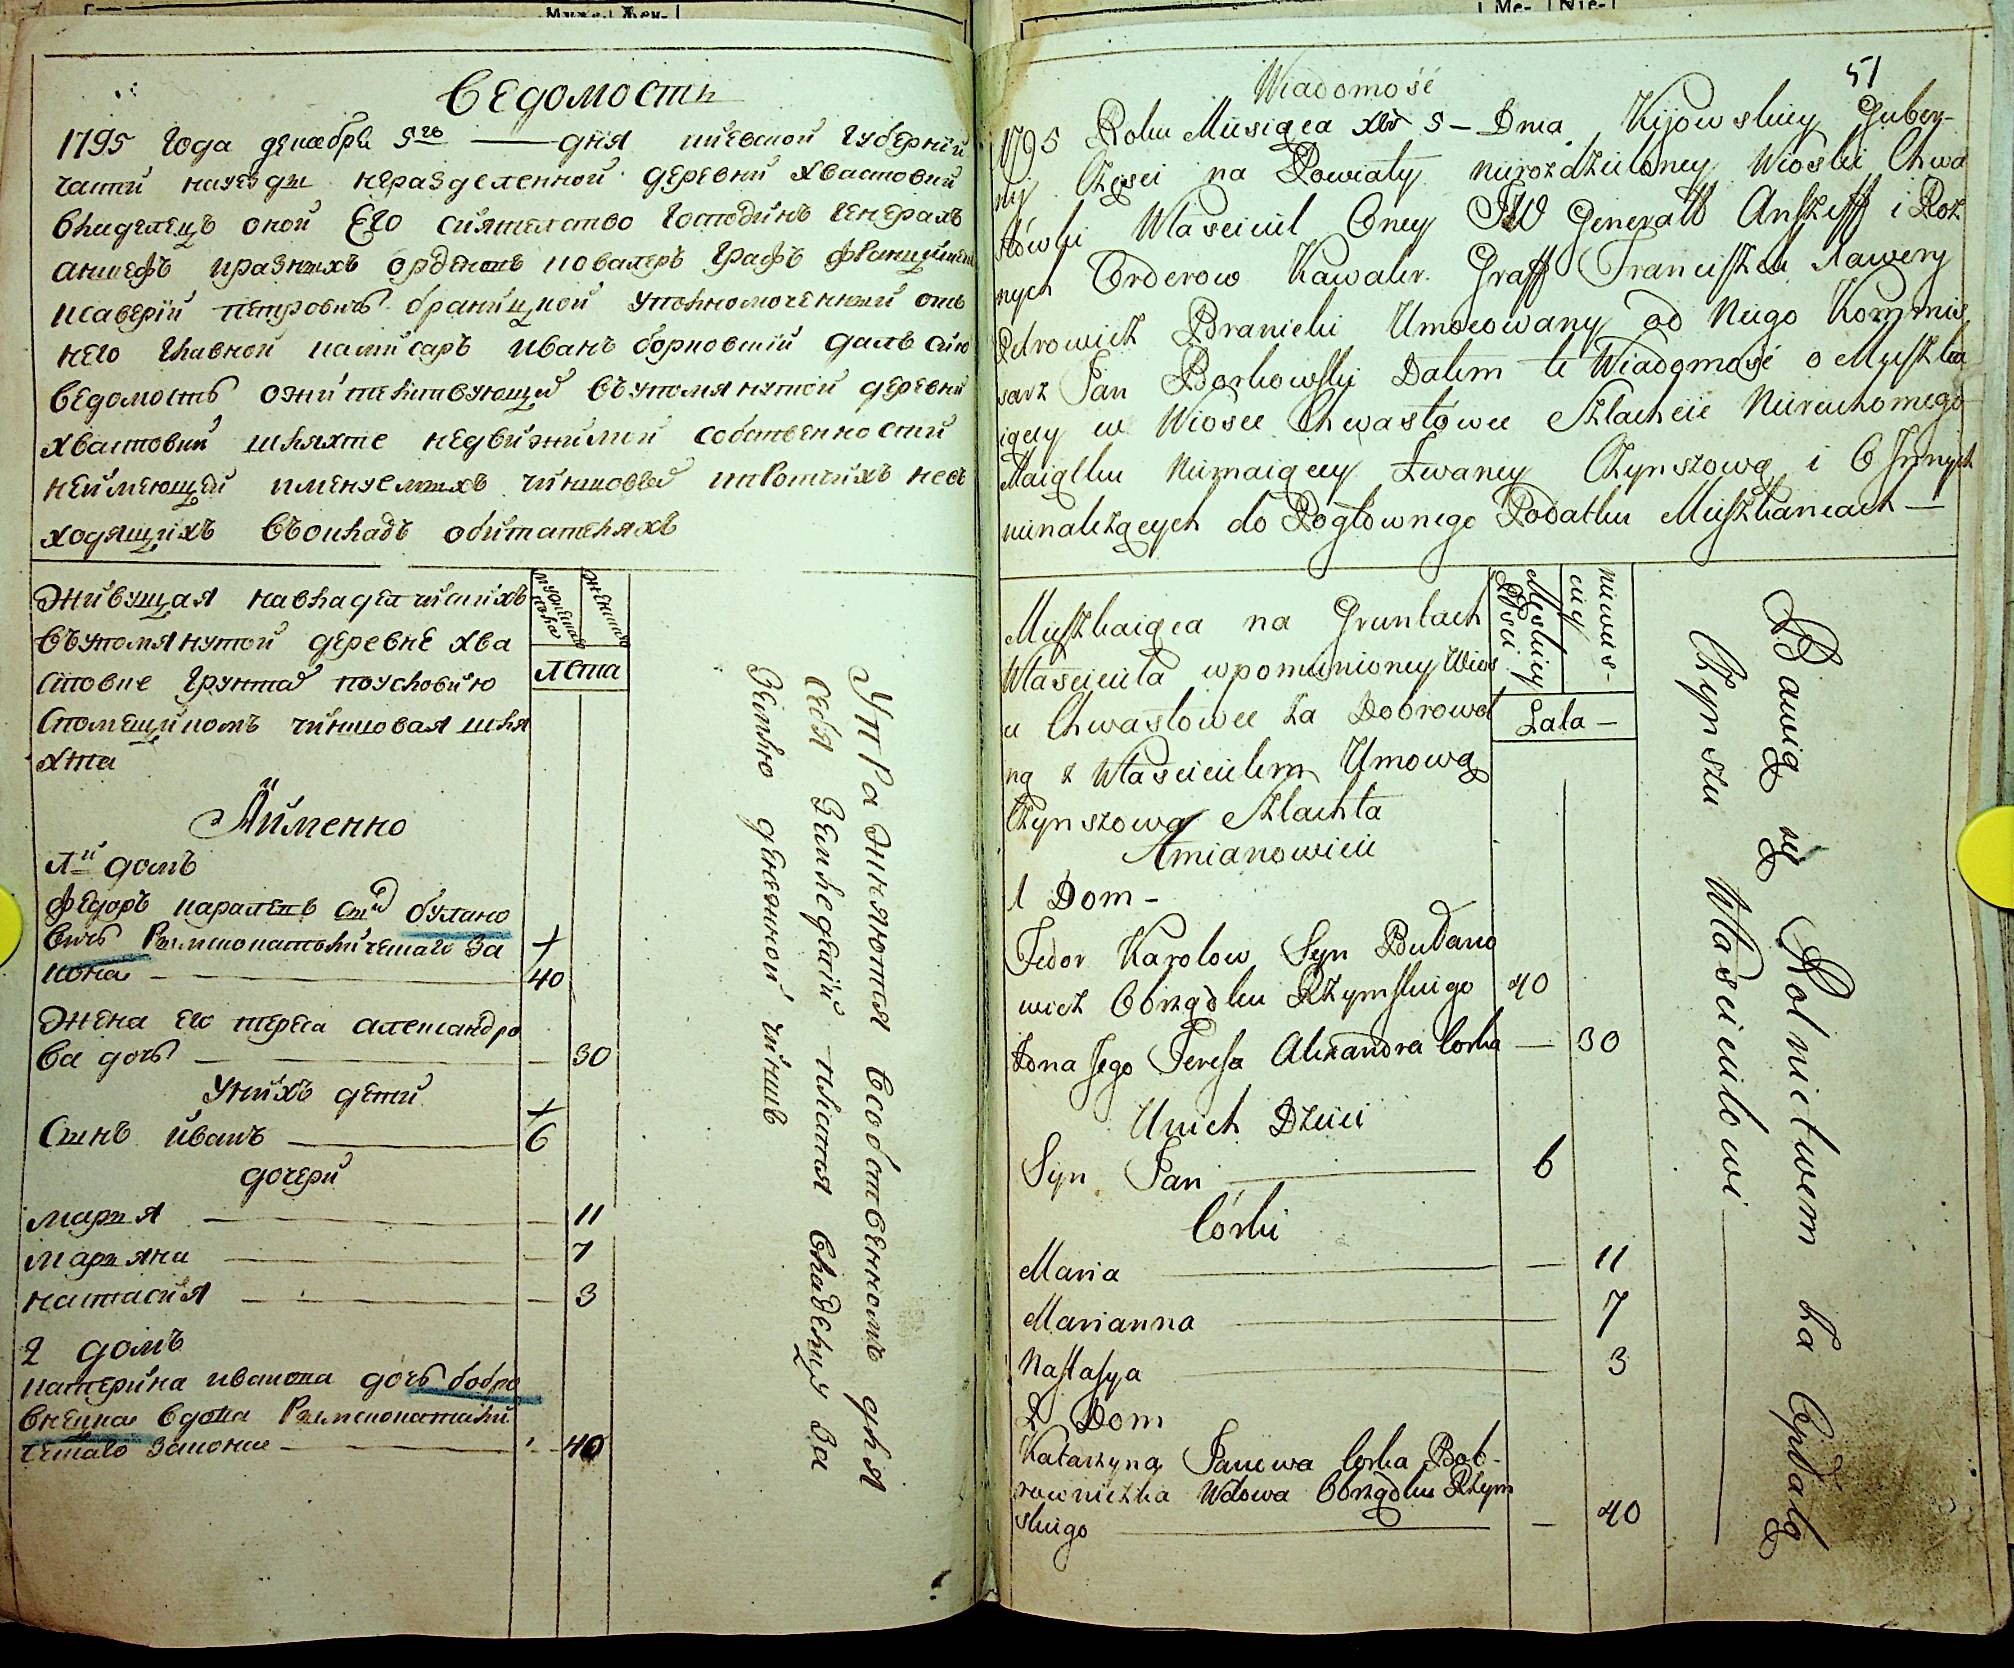 Ведомость
1795 Года декабря 5го — дня киевской Губернии
части науезды неразделенной деревни Хвастовки
владелец оной Его сиятелство Господинъ Генералъ
аншефъ иразныхъ орденовъ кавалеръ Графъ Францишекъ
ксаверiй петровичъ браницкой уполномоченный отъ
него Главной камисаръ иванъ борковскiй далъ сию
ведомость ожителствующей въупомянутой деревни
хвастовки шляхте недвижимой собственности
неимеющей именуемыхъ чиншовая ипротчихъ невъ
ходящихъ въокладъ обитателяхъ
Живущая навладелчискихъ
въупомянутой деревне хва
стовке Грунтах поусловию
спомещикомъ чиншовая шля
хта
Аименно
1й домъ
федоръ каролевъ сынъ будано
вичъ Римскокатоличешаго за
кона — 40
жена его тереса александро
ва дочь — 30
Унихъ дети
Сынъ иванъ — 6
дочери
марыя — 11
марыяна — 7
настасия — 3
2 домъ
катерина иванова дочь бобро
вницка вдова Римскокатоли
чешаго закона — 40
мужеска
пола
женска
Лета
Упражняются всобственномъ для
себя земледелiи платя владелцу за
землю денежной чиншъ
51
Wiadomość
1795 Roku Miesiąca Xbr 5 – Dnia Kijowskiey Guber-
nij Częsci na Powiaty nierozdzieloney Wioski Chwa
stówki Własciciel Oney JW Generałł Anszeff i Roz
nych Orderow Kawaler Graff Franciszek Xawery
Petrowicz Branicki Umocowany od Niego Kommis
sarz Jan Borkowski Dałem te Wiadomość o Mieszka
iącey w Wiosce Chwastowce Szlachcie Nieruchomego
Maiątku Niemaiącey Zwaney Czynszową i O Jnnych
nienależących do Pogłownego Podatku Mieszkanicach —
Mieszkaiąca na Gruntach
Własciciela wpomnioney Wios
ce Chwastowce za Dobrowol
ną z Włascicielem Umową
Czynszowa Szlachta
Amianowicie
1 Dom –
Fedor Karolow Syn Budano
wicz Obrządku Rzymskiego 40
Zona Jego Teresa Alexandra Corka — 30
Unich Dzieci
Syn Jan — 6
Córki
Maria — 11
Marianna — 7
Nastasya — 3
2 Dom
Katarzyna Janowa Corka Bob-
rowniczka Wdowa Obrządku Rzym
skiego — 40
Męskiey
Płci
niewies-
ciey
Lata –
Bawią się Rolnictwem za Opłatą
Czynszu Włascicielowi —